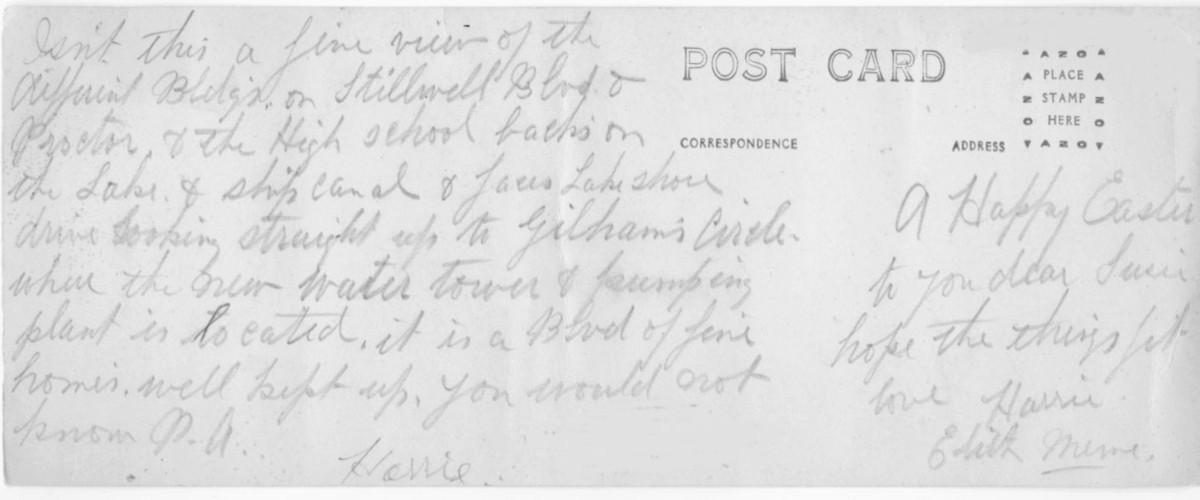 Isn't this a fine view of the
different Bldgs. on Stillwell Blvd &
Proctor. & the High school backs on
the Lake. & ship canal & faces Lakeshore
drive looking straight up to Gilham's Circle.
where the new water tower & pumping
plant is located. it is a Blvd of fine
homes. well kept up. you would not
know P.A.
Harrie.
POST CARD
CORRESPONDENCE
ADDRESS
AZO
PLACE
STAMP
HERE
AZO
A Happy Easter
to you dear Susie
hope the things fit
love Harrie
Edith